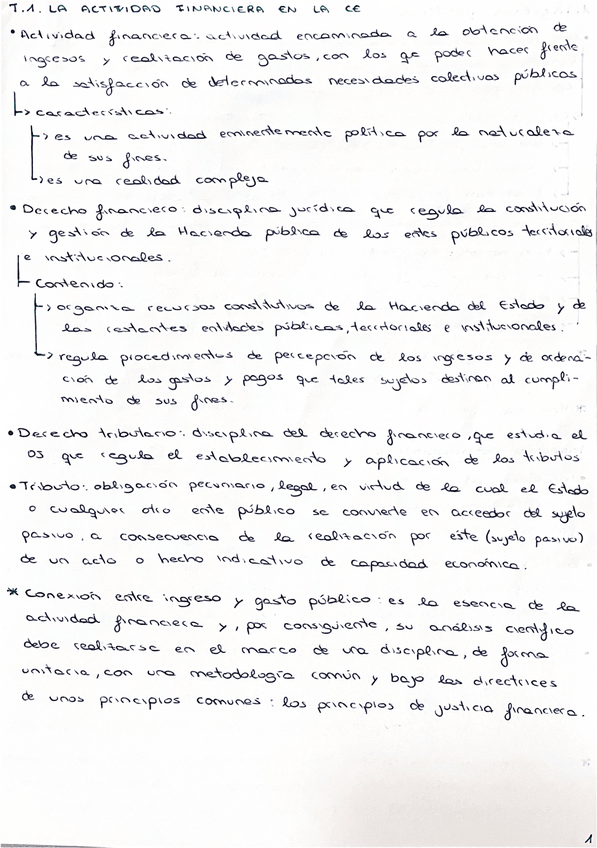 T.1. LA ACTIVIDAD FINANCIERA EN LA CE
• Actividad financiera: actividad encaminada a la obtención de
ingresos y realización de gastos, con los qe poder hacer frente
a la satisfacción de determinadas necesidades colectivas públicas
↳ características:
↳ es una actividad eminentemente política por la naturaleza
de sus fines.
↳ es una realidad compleja
• Derecho financiero: disciplina jurídica que regula la constitución
y gestión de la Hacienda pública de los entes públicos territoriales
e institucionales.
Contenido:
↳ organiza recursos constitutivos de la Hacienda del Estado y de
las restantes entidades públicas, territoriales e institucionales.
↳ regula procedimientos de percepción de los ingresos y de ordena-
ción de los gastos y pagos que tales sujetos destinan al cumpli-
miento de sus fines.
• Derecho tributario: disciplina del derecho financiero, que estudia el
OJ que regula el establecimiento y aplicación de los tributos
• Tributo: obligación pecuniaria, legal, en virtud de la cual el Estado
o cualquier otro ente público se convierte en acreedor del sujeto
pasivo, a consecuencia de la realización por este (sujeto pasivo)
de un acto o hecho indicativo de capacidad económica.
* Conexión entre ingreso y gasto público: es la esencia de la
actividad financiera y, por consiguiente, su análisis científico
debe realizarse en el marco de una disciplina, de forma
unitaria, con una metodología común y bajo las directrices
de unos principios comunes: los principios de justicia financiera.
1